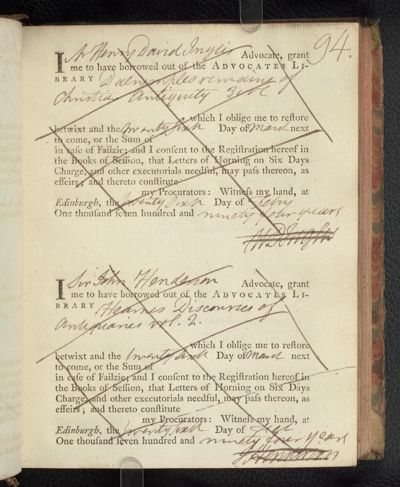 94.
I Mr Henry David Inglis Advocate, grant
me to have borrowed out of the ADVOCATES LI-
BRARY Dalrymples remains of
Christian Antiquity 3 vol
which I oblige me to reſtore
betwixt and the twenty sixth Day of March next
to come, or the Sum of
in caſe of Failzie; and I conſent to the Regiſtration hereof in
the Books of Seſſion, that Letters of Horning on Six Days
Charge, and other executorials needful, may paſs thereon, as
effeirs; and thereto conſtitute
my Procurators: Witneſs my hand, at
Edinburgh, the twenty sixth Day of Feby
One thouſand ſeven hundred and ninety four years
I Sir John Henderson Advocate, grant
me to have borrowed out of the ADVOCATES LI-
BRARY Hearnes Discourses of
Antiquaries vol. 2.
which I oblige me to reſtore
betwixt and the twenty sixth Day of March next
to come, or the Sum of
in caſe of Failzie; and I conſent to the Regiſtration hereof in
the Books of Seſſion, that Letters of Horning on Six Days
Charge, and other executorials needful, may paſs thereon, as
effeirs; and thereto conſtitute
my Procurators: Witneſs my hand, at
Edinburgh, the twenty sixth Day of
One thouſand ſeven hundred and ninety four years